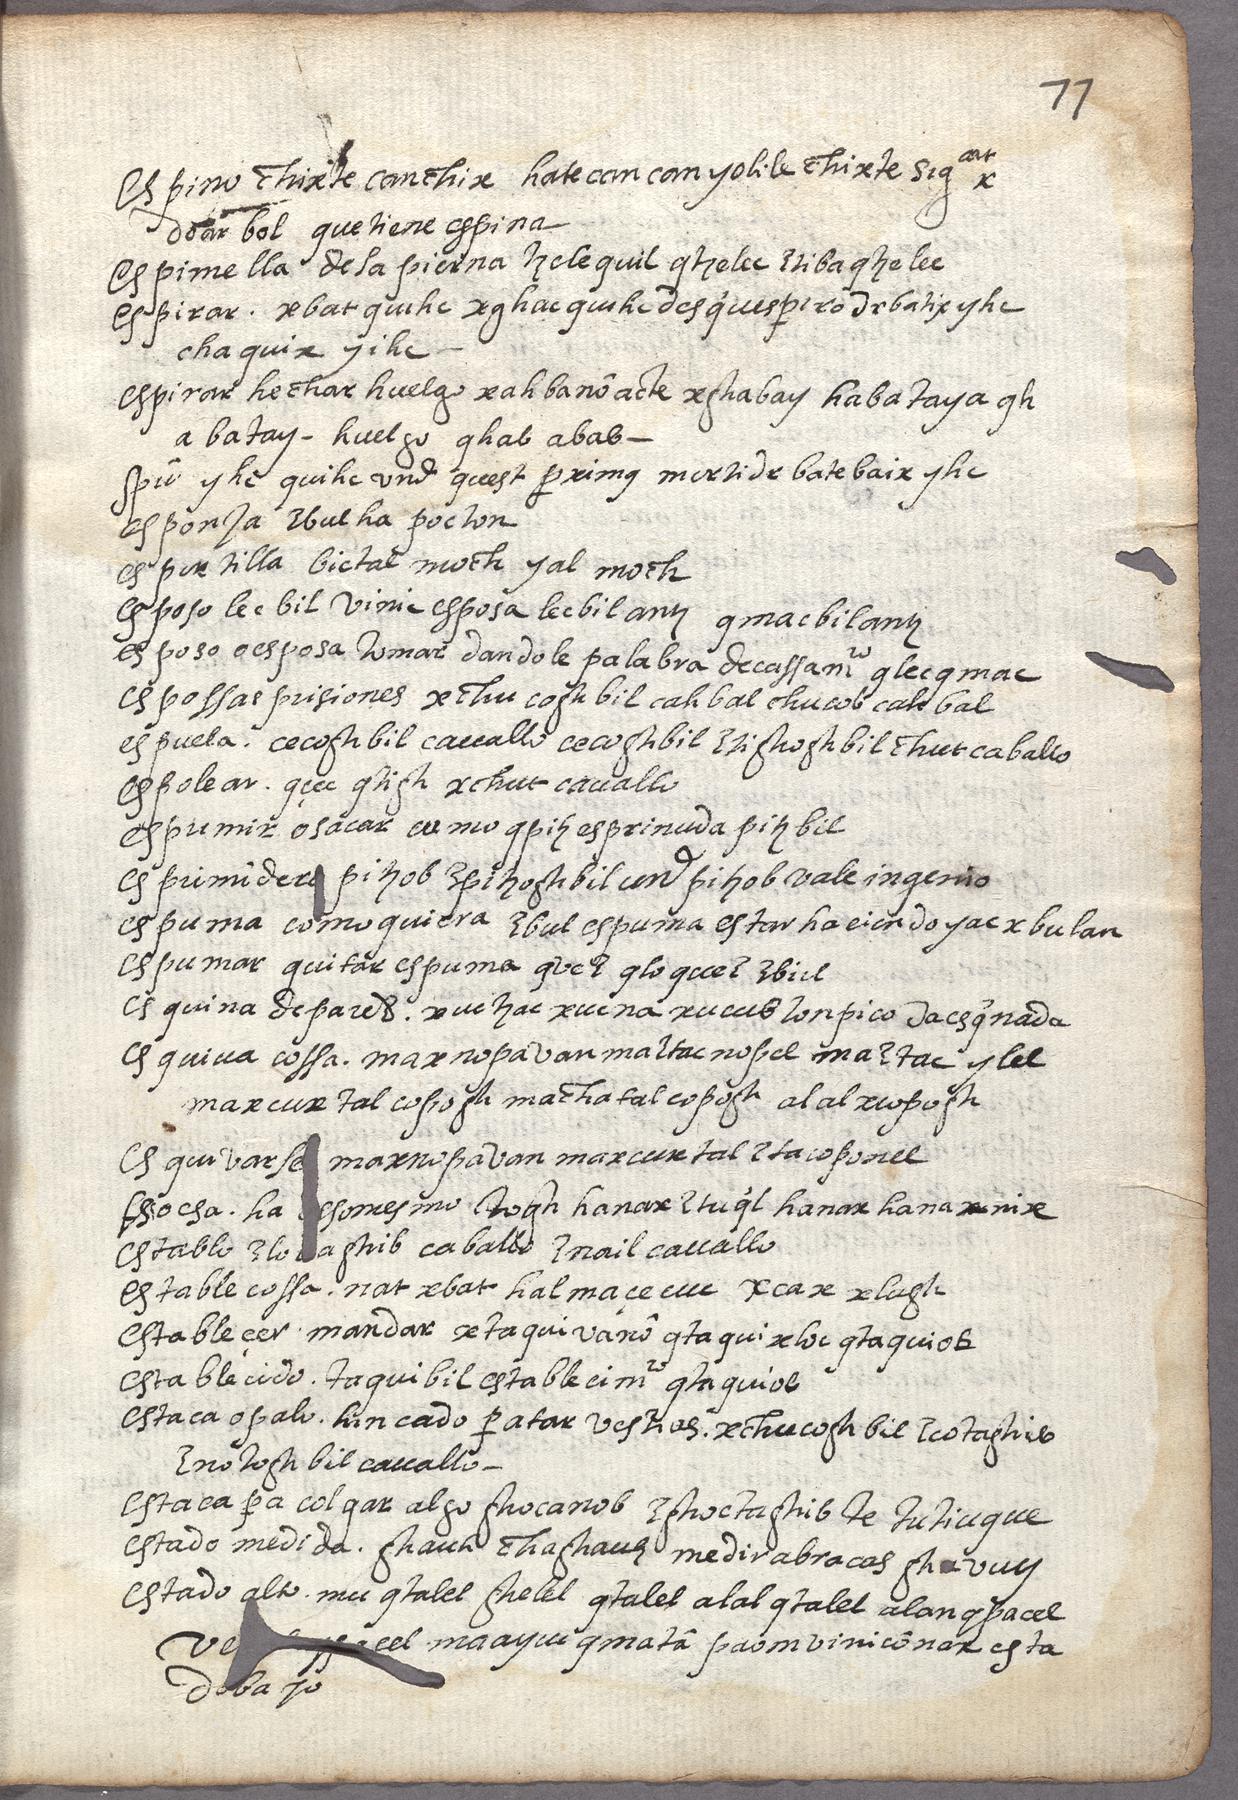 77
espino chixte canchix hate can can yolil chixte sigcat x
do arbol que tiene espina
espinella de la pierna tzelequil qtzelec stibaqtzelec
espirar . xbat quihc xghac quihc desq̃ uespiro dxbatix yhc
chaquix yihc
espirar hechar huelgo xahbanõ acte xghabay habataya gh
abatay - huelgo ghab abab -
spũ yhc quihc vnd quest primg mortidx batebaix yhc
esponja sbulha pocton
esportilla bictal moch yal moch
esposo lecbil vinic esposa lecbil antz qmacbilantz
esposo o esposa tomar dandole palabra de cassamto qlecqmac
espossas prisiones xchucoghbil cahbal chucob cahbal
espuela . cecoghbil cauallo cecoghbil stighoghbil chut caballo
espolear . qçec qtigh xchut cauallo
espumir o sacar como qpitz esprimida pitzbil
esprimider pitzob spitzoghbil und pitzob vale ingenio
espuma como quiera sbul espuma estar haciendo yac xbulan
espumar quitar espuma
esquina de pared . xuctzac xucna xucub ton pico da esq̃nada
esquiua cossa . maxnopavan mastac nopel mastac ylel
maxcuxtal copogh machatal copogh alal xcopogh
esquivarse maxnopavan maxcuxtal stacoponel
essocsa . ha essomesmo stogh hanax stuq̃l hanax hanaxnix
establo caballo snail cauallo
estable cossa . nat xbat halmaçecuc xcax xlugh
estableçer mandar xtaquivanõ qtaqui xloc qtaquiob
establecido . taquibil establecimto qtaquiob
estaca o palo . hincado para atar vestias . xchucoghbil scotaghib
snotoghbil cauallo -
estaca pa colgar algo ghocanob sghoctaghib te tutiuque
estado medida . ghauh chaghauh medir abraças
estado alto . mu qtalel ghelel qtalel alal qtalel alanqpacel
maayuc qmatã paomvinicõnax esta
dobajo